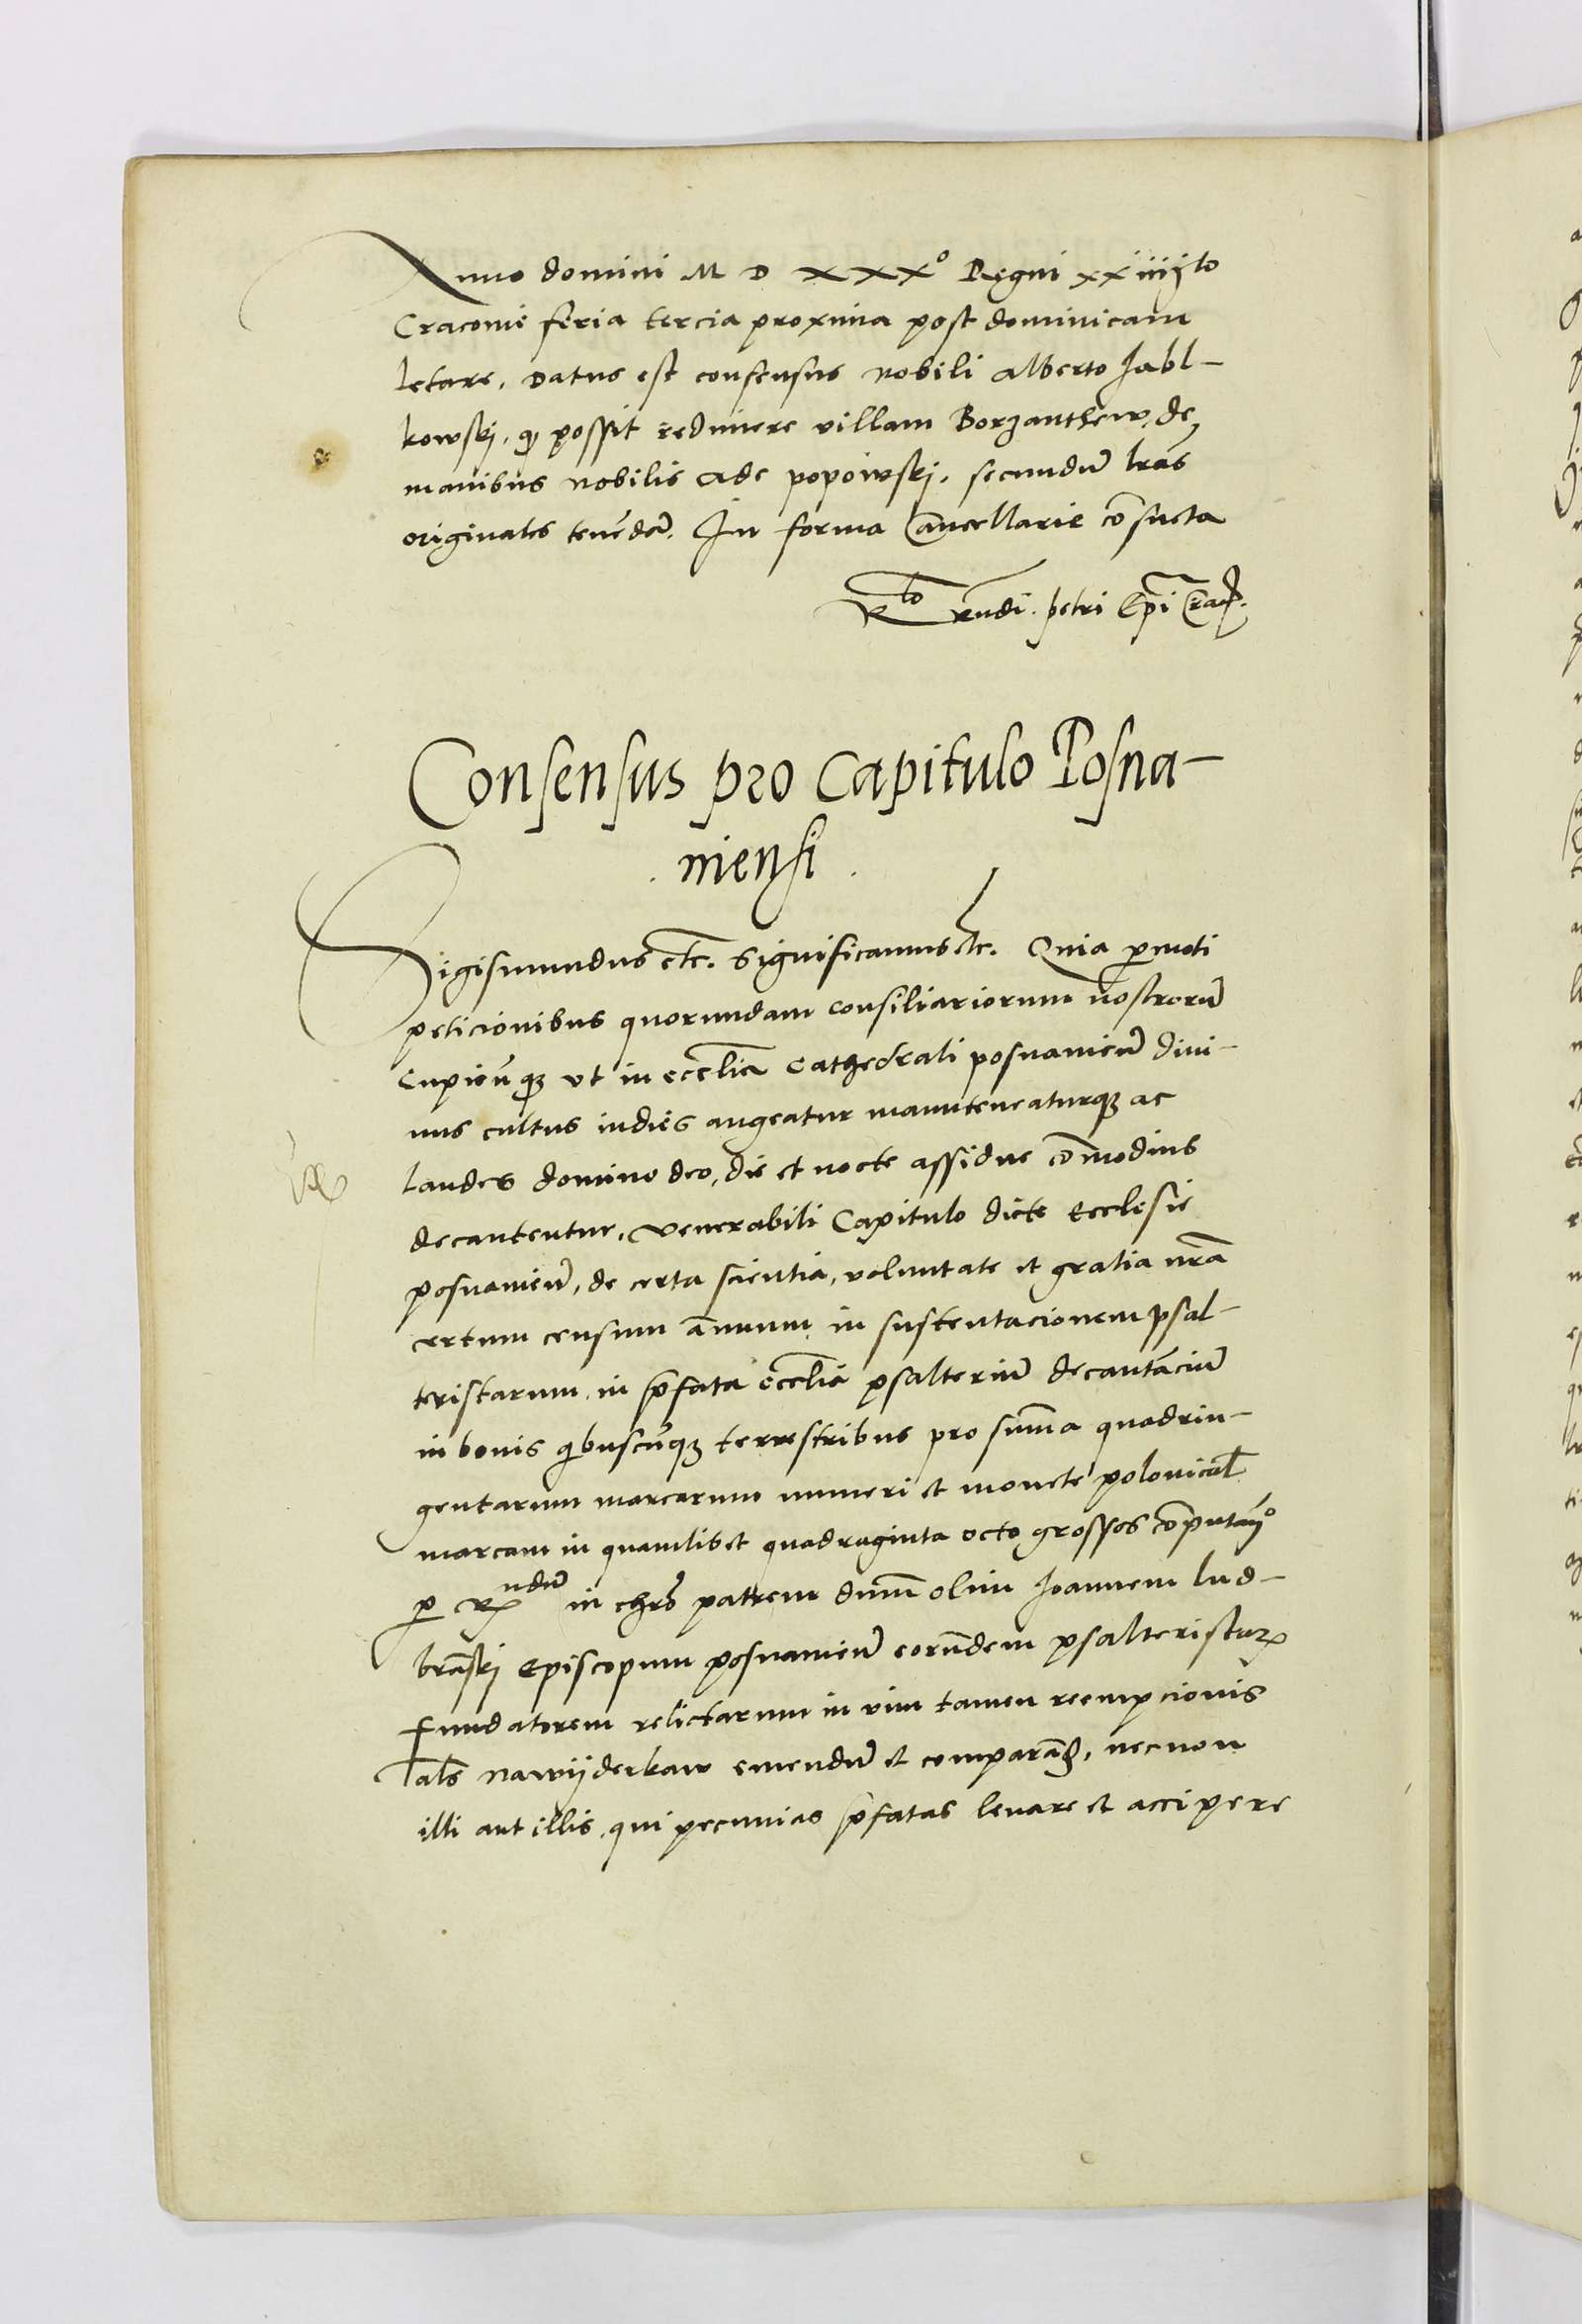 Anno domini M D XXX° Regni xxiiijto
Cracovie feria tercia proxima post dominicam
letare. Datus est consensus nobili Alberto Jabl-
kowskj. qͥ possit redimere villam Borzanthew. de
manibus nobilis Ade popowskj. secundū lrās
originales tenēdā. In forma Cancellarie cōsueta
Rlto Rndi. petri Ep̄i Crac̄.
Consensus pro Capitulo Posna-
niensi.
Sigismundus etc̄. Significamus etc̄. Quia ꝑmoti
peticionibus quorundam consiliariorum nostrorū
Cupien̄qꝫ vt in eccl̄ia Cathedrali posnanien̄ divi-
nus cultus indies augeatur manuteneaturqꝫ ac
laudes domino deo, die et nocte assidue cōmodius
decantentur. venerabili Capitulo dicte Ecclesie
posnanien̄, de certa scientia, voluntate et gratia nrā
certum censum annuum in sustentacionem psal-
teristarum in p̄fata eccl̄ia psalteriū decantāciū
in bonis qͥbuscūqꝫ terrestribus pro sum̄a quadrin-
gentarum marcarum numeri et monete polonical̄
marcam in quamlibet quadraginta octo grossos cōputan̄°
ꝑ Rndū in chrō patrem dnūm olim Joannem Lud-
brāskj Episcopum posnanien̄ eorūdem psalteristarꝝ
fundatorem relictarum in vim tamen reempcionis
als nawijderkaw emendū et comparād̄, necnon
illi aut illis. qui pecunias p̄fatas levare et accipere